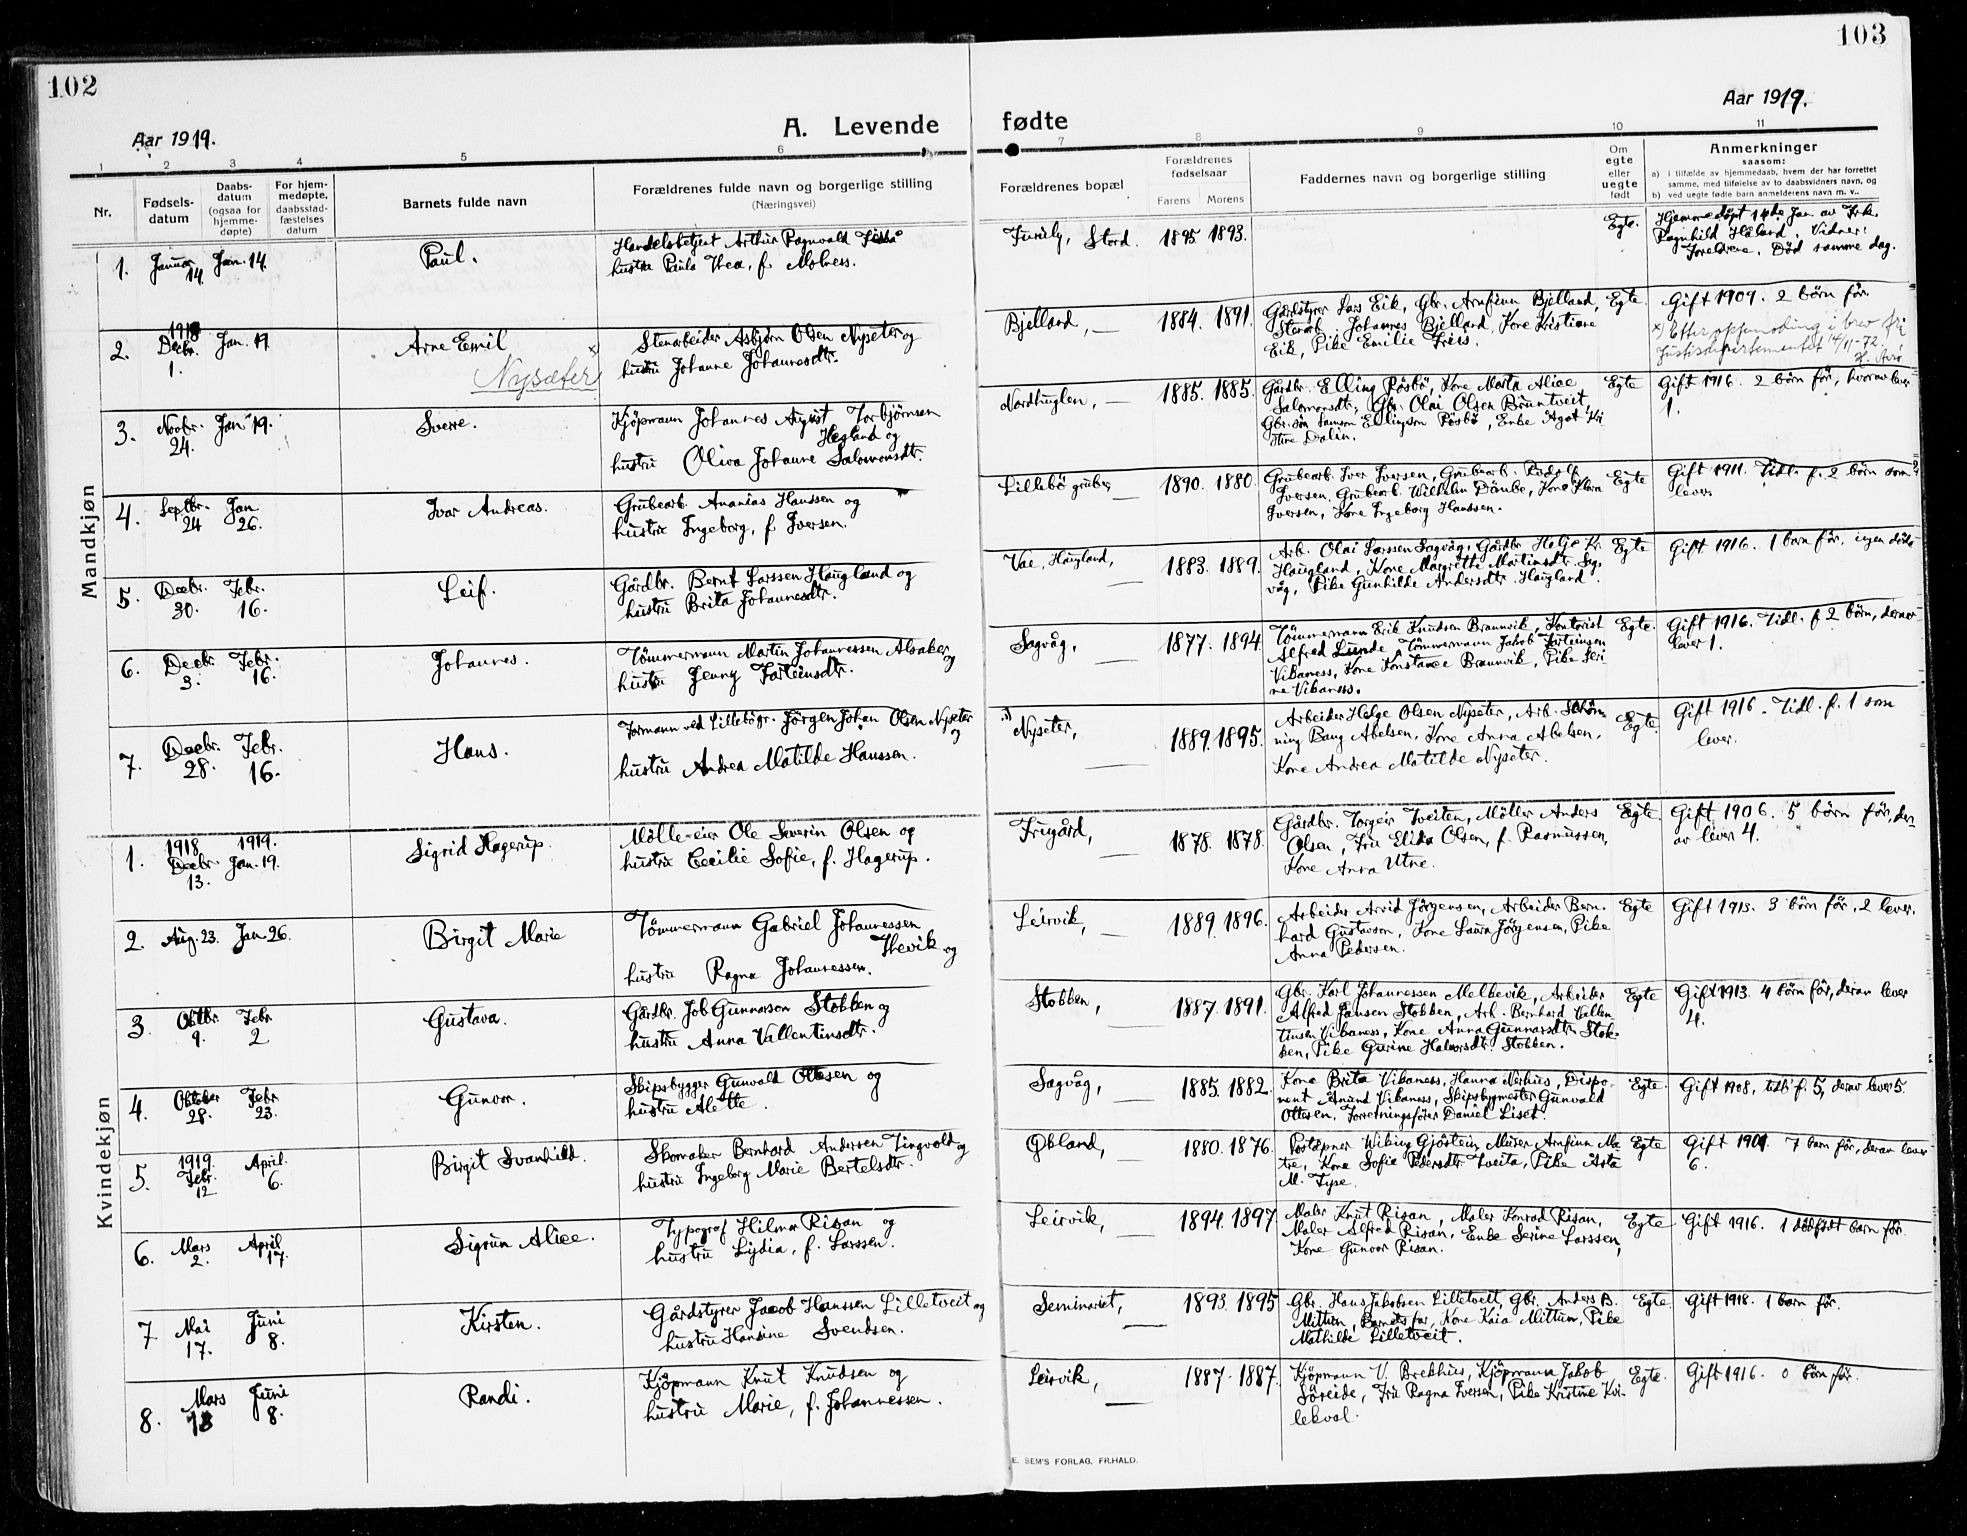 102
Aar 1919.
A. Levende
1 2 3 4 5 6
Nr.
Fødsels-
datum
Daabs-
datum
(ogsaa for
hjemme-
døpte)
For hjem-
medøpte,
daabsstad-
fæstelses
datum
Barnets fulde navn
Forældrenes fulde navn og borgerlige stilling
(Næringsvei)
Mandkjøn
1. Januar 14. Jan. 14. Paul.
Handelsbetjent Arthur Ragnvald
hustru Paula Thea, f. Molness.
2. 1918 Decbr. 1. Jan. 19 Arne Emil
Nysæter x
Stenarbeider Asbjørn Olsen Nyseter og
hustru Johanne Johannesdtr.
3. Novbr. 24. Jan. 19. Sverre.
Kjöpmann Johannes August Torbjørnsen
Hegland og
hustru Oliva Johanne Salomonsdtr.
4. Septbr. 24 Jan 26. Ivar Andreas.
Grubearb. Ananias Hanssen og
hustru Ingeborg, f. Iversen.
5. Decbr. 30. Febr. 16. Leif.
Gårdbr. Bernt Larssen Haugland og
hustru Brita Johannesdtr.
6. Decbr. 3. Febr. 16. Johannes.
Tømmermann Martin Johannessen Alsaker og
hustru Jenny Torteinsdtr.
7. Decbr. 28. Febr. 16. Hans.
Formann ved Lillebögr. Jörgen Johan Olsen Nyseter og
hustru Andrea Matilde Hanssen.
Kvindekjøn
1. 1918 Decbr. 13. 1919. Jan. 19. Sigrid Hagerup.
Mølle-eier Ole Severin Olsen og
hustru Cecilie Sofie, f. Hagerup.
2. Aug. 23. Jan 26. Birgit Marie
Tømmermann Gabriel Johannessen
Thevik og
hustru Ragna Johannessen.
3. Oktbr. 9. Febr. 2 Gustava.
Gårdbr. Job Gunnarson Stokken og
hustru Anna Vallentinsdtr.
4. Oktober 28. Febr 23. Gunvor.
Skipsbygger Gunvald Ottesen og
hustru Alette.
5. 1919. Febr. 12 April. 6. Birgit Svanhild.
Skomaker Bernhard Andersen Tingvold og
hustru Ingeborg Marie Bertelsdtr.
6. Mars 2. April 17. Sigrun Alice.
Typograf Hilmar Risan og
hustru Lydia, f. Larssen.
7 Mai 17. Juni 8. Kirsten.
Gårdstyrer Jacob Hanssen Lilletveit og
hustru Hansine Svendsen.
8. Mars 13 Juni 8. Randi.
Kjöpmann Knut Knudsen og
hustru Marie, f. Johannessen.
103
Aar 1919.
fødte
7 8 9 10 11
Forældrenes bopæl
Forældrenes
fødselsaar
Farens Morens
Faddernes navn og borgerlige stilling
Om
egte
eller
uegte
født
Anmerkninger
saasom:
a) i tilfælde av hjemmedaab, hvem der har forrettet
samme, med tilføielse av to daabsvidners navn, og
b) ved uegte fødte barn anmelderens navn m. v.,
Furuly, Stord. 1895 1893. Egte.
Hjemmedøpt 14de Jan. av Frk.
Ragnhild Håland. Vidner:
Foreldrene. Död samme dag.
Bjelland, — 1884. 1891.
Gårdstyrer Lars Eik, Gbr. Arnfinn Bjelland,
Stenarb. Johannes Bjelland, Kone Kristiane
Eik, Pike Emilie Friis.
Egte
Gift 1909. 2 börn för.
x) Efter oppmoding i brev frå
Justisdepartementet 14/11-72
Nordhuglen, — 1885. 1885.
Gårdbr. Elling Røsbø, Kone Marta Alice
Salomonsdtr., Gbr. Olai Olsen Bruntveit,
Gbr.søn Samson Ellingson Røsbø, Enke Agat Kri
stine Dalin.
Egte
Gift 1916. 2 börn för, hvorav lever
1.
Lillebö gruber, — 1890. 1880.
Grubearb. Iver Iversen, Grubearb. Rudolf
Iversen, Grubearb. Wilhelm Dömbe, Kone Klara
Iversen, Kone Ingeborg Hanssen.
Egte
Gift 1911. Tidl. f. 2 börn som
lever.
Vae, Haugland, — 1883. 1889.
Arb. Olai Larssen Sagvåg, Gårdbr. Helge Kr.
Haugland, Kone Margrethe Martinsdtr. Sag-
våg, Pike Gunhilde Andersdtr. Haugland.
Egte
Gift 1916. 1 barn för. ingen döde
Sagvåg, — 1877. 1894.
Tömmermann Erik Knudsen Braunvik, Kontorist
Alfred Lunde, Tømmermann Jakob Torteinsen
Vikaness, Kone Konstance Braunvik, Pike Seri
ne Vikaness.
Egte.
Gift 1916. Tidl. f. 2 börn, derav
lever 1.
Nyseter, — 1889. 1895.
Arbeider Helge Olsen Nyseter, Arb. Schön-
ning Bang Abelsen, Kone Anna Abelsen,
Kone Andrea Matilde Nyseter.
Egte.
Gift 1916. Tidl. f. 1 som
lever.
Frugård, — 1878. 1878.
Gårdbr. Torgeir Tveiten, Møller Anders
Olsen, Fru Elida Olsen, f. Rasmussen,
Kone Anna Utne.
Egte
Gift 1906. 5 börn för, der-
av lever 4.
Leirvik, — 1889. 1896.
Arbeider Arvid Jörgensen, Arbeider Bern-
hard Gustavson, Kone Laura Jörgensen, Pike
Anna Pedersen.
Egte
Gift 1913. 3 börn för, 2 lever.
Stokken, — 1887. 1891.
Gbr. Karl Johannessen Melkevik, Arbeider
Alfred Jansen Stokken, Arb. Bernhard Vallen-
tinsen Vikaness, Kone Anna Gunnarsdtr. Stok-
ken, Pike Gurine Halvorsdtr. Stokken.
Egte
Gift 1913. 4 börn för, derav lever
4.
Sagvåg, — 1885. 1882.
Kone Brita Vikaness, Hanna Nerhus, Dispo-
nent Ånund Vikaness, Skipsbygmester Gunvald
Ottesen, Forretningsfører Daniel Liset.
Egte.
Gift 1908, tidl. f. 5, derav lever 5.
Øbland, — 1880. 1876.
Poståpner Wiking Gjöstein, Murer Arnfinn Ma-
tre, Kone Sofie Pedersdtr. Tveita, Pike Asta
M. Tyse.
Egte
Gift 1901. 7 barn för, derav lever
6.
Leirvik, — 1894. 1897
Maler Knut Risan, Maler Konrad Risan,
Maler Alfred Risan, Enke Serine Larssen,
Kone Gunvor Risan.
Egte
Gift 1916. 1 dödfödt barn för.
Seminariet, — 1893. 1895
Gbr. Hans Jakobsen Lilletveit, Gbr. Anders B.
Mittun, Barnets far, Kone Kaia Mittun, Pike
Mathilde Lilletveit.
Egte.
Gift 1918. 1 barn för.
Leirvik, — 1887. 1887.
Kjöpmann V. Brekhus, Kjöpmann Jakob
Söreide, Fru Ragna Iversen, Pike Kristine Kvi-
lekval.
Egte.
Gift 1916. 0 börn för.
E. SEM'S FORLAG, FR.HALD.